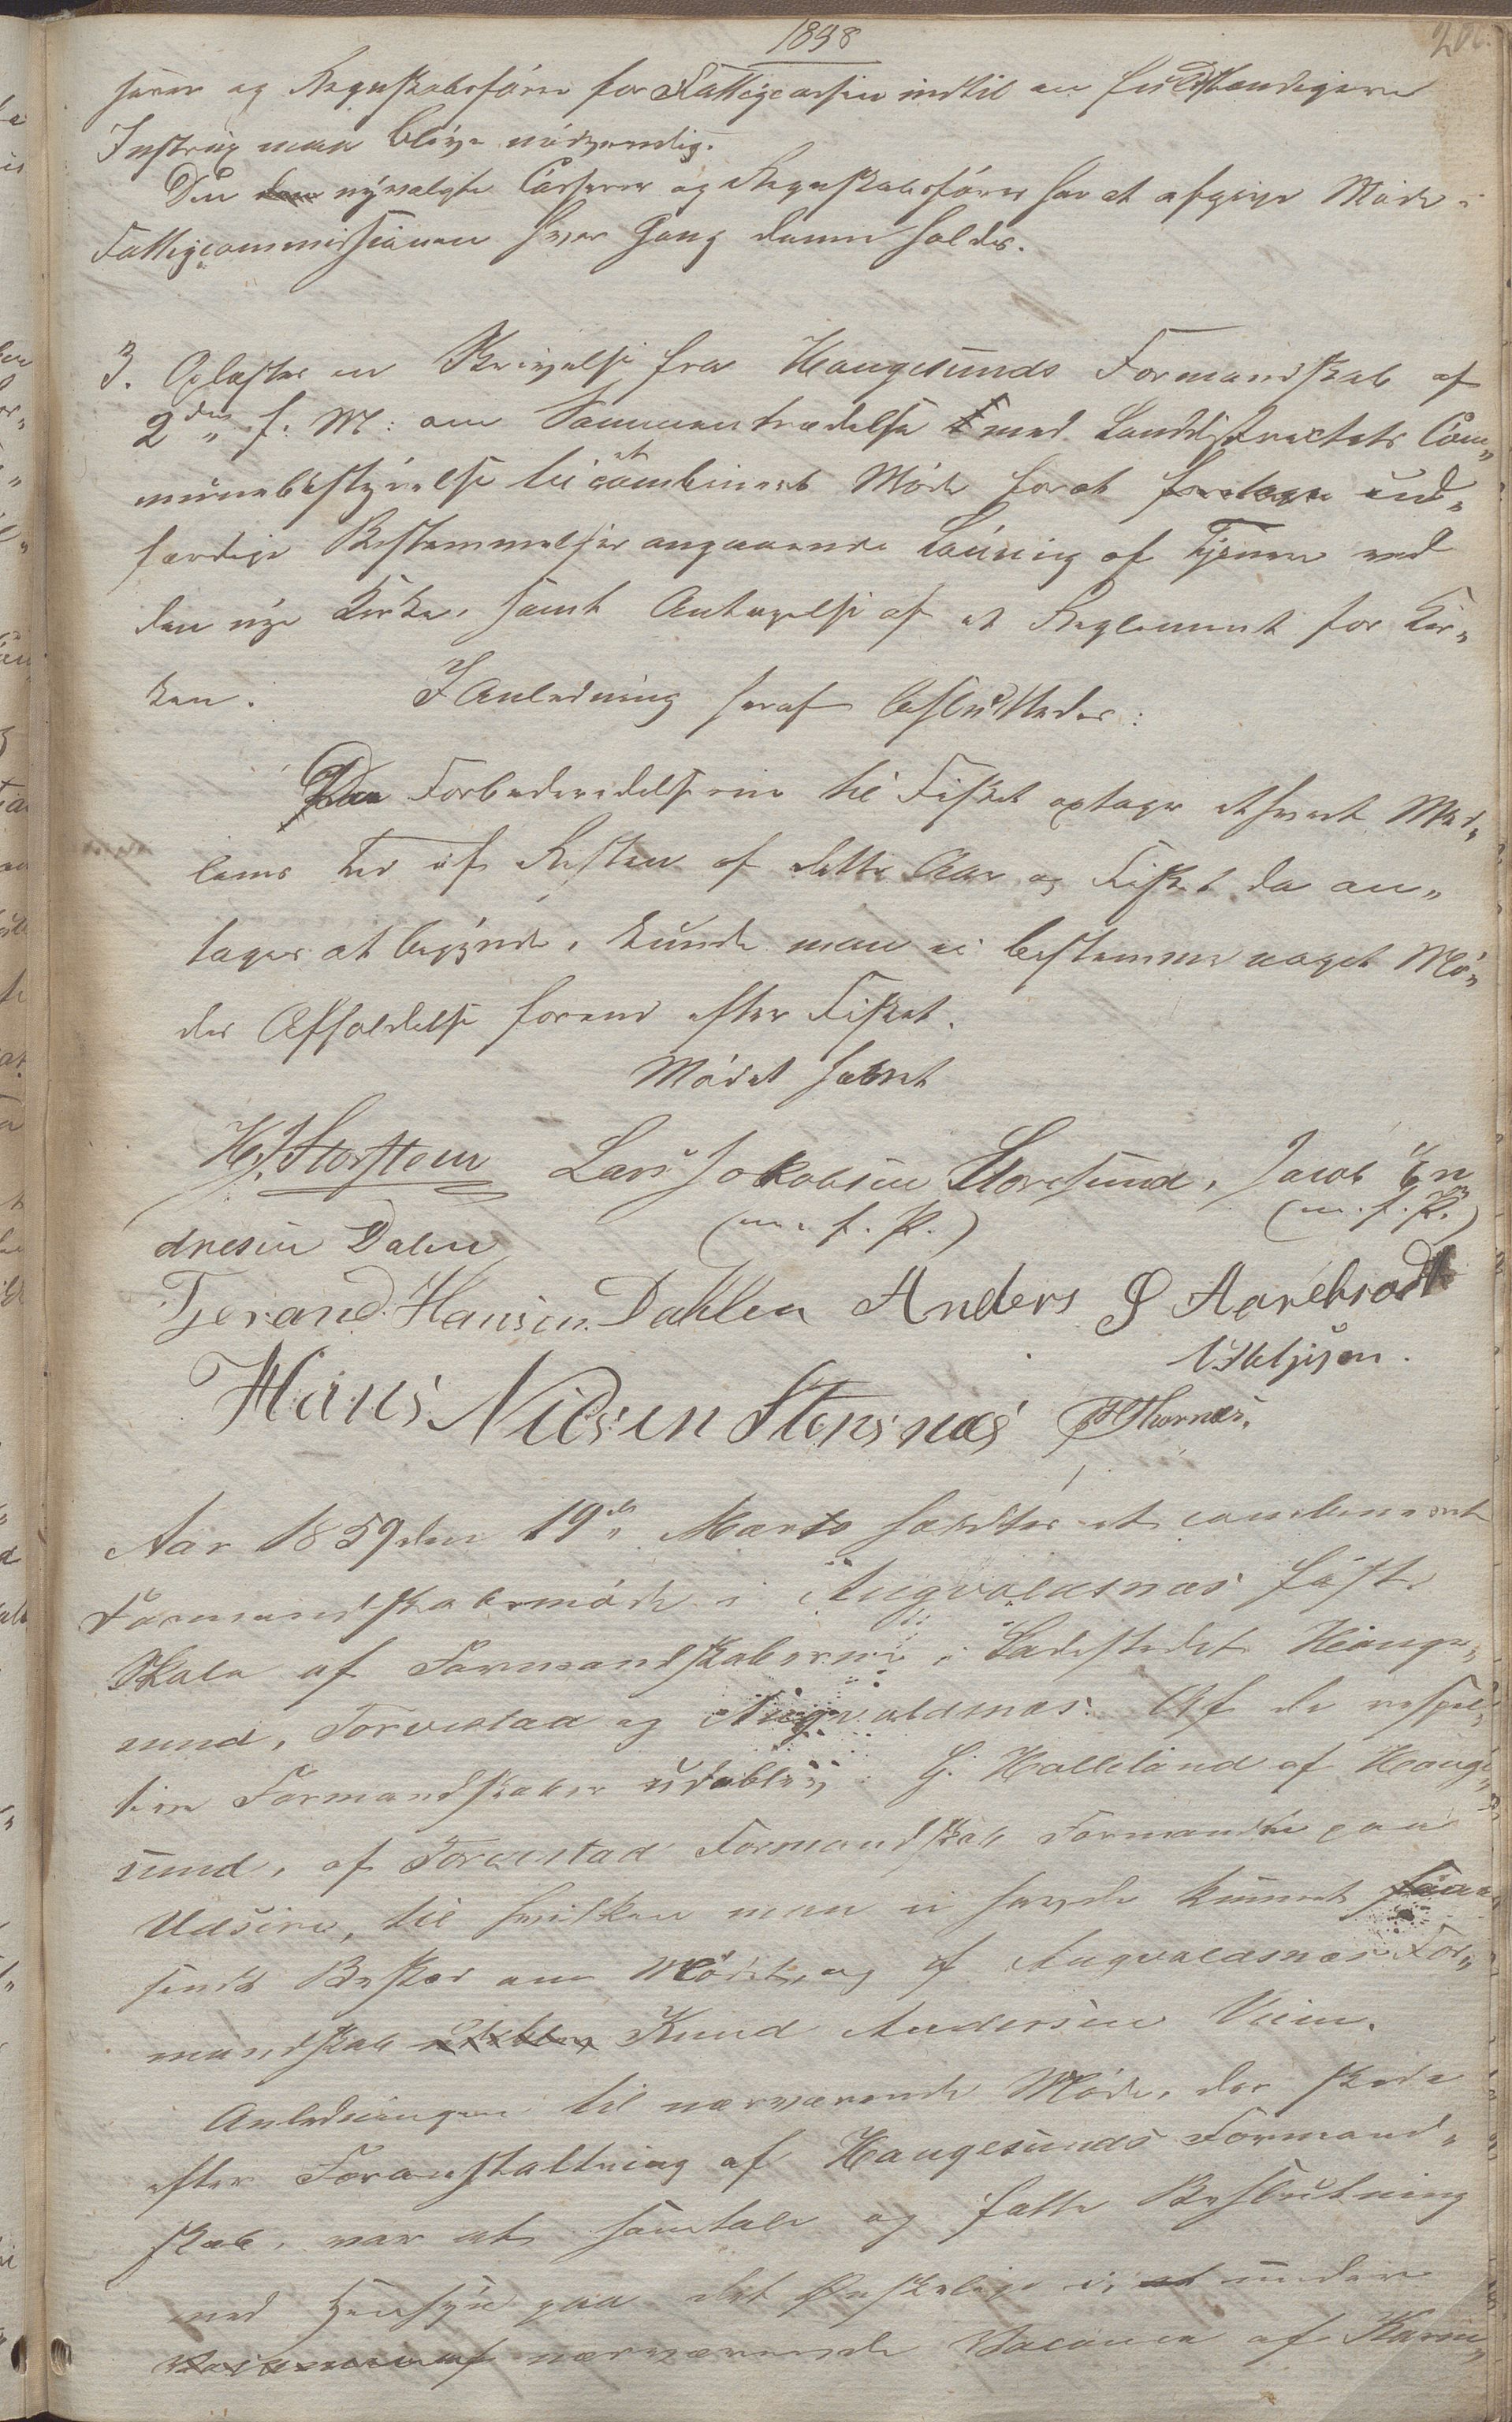 1858
serer og Regnskabsfører for Fattigcassen indtil en fuldstændigere
Instrux maa blive nødvendig.
Den nyvalgte Casserer og Regnskabsfører har at afgive Møde i
Fattigcommissionen hver Gang denne holdes.
3. Oplæstes en Skrivelse fra Haugesunds Formandskab af
2den f. M: om Sammentrædelse med Landdistrictets Com„
munebestyrelse til et combineret Møde for at foretage ud„
færdige Bestemmelser angaaende Lønning af Tjenere ved
den nye Kirke, samt Antagelse af et Reglement for Kir„
ken. I Anledning heraf besluttedes:
Da Forberedelserne til Fisket optager ethvert Med„
lems Tid i Resten af dette Aar og Fisket da an„
tages at begynde, kunde man ei bestemme noget Mø„
des Afholdelse førend efter Fisket.
Mødet hævet
H. J. Storstein Lars Jakobsen Storesund, Jacob En
(m. f. P.) (m. f. P.)
dresen Dalen
Tjerand Hansen Dahlen Anders S Aarebrodt
Hans Nilsen Stensnæs Thornæs.
Aar 1859 den 19de Marts holdtes et combineret
Formandskabsmøde i Augvaldsnæs faste
Skole af Formandskaberne i Ladestedet Hauge„
sund, Torvestad og Augvaldsnæs. Af de respec„
tive Formandskaber udeblev G. Halleland af Hauge„
sund, af Torvestad Formandskab Formanden paa
Udsire, til hvilken man ei havde kunnet faae
sendt Besked om Mødet, og af Augvaldsnæs For„
mandskab Knud Andersen Veien.
Anledningen til nærværende Møde, der skede
efter Foranstaltning af Haugesunds Formand„
skab, var at samtale og fatte Beslutning
med Hensyn paa det Ønskelige i, under
nærværende Vacance af Karm„